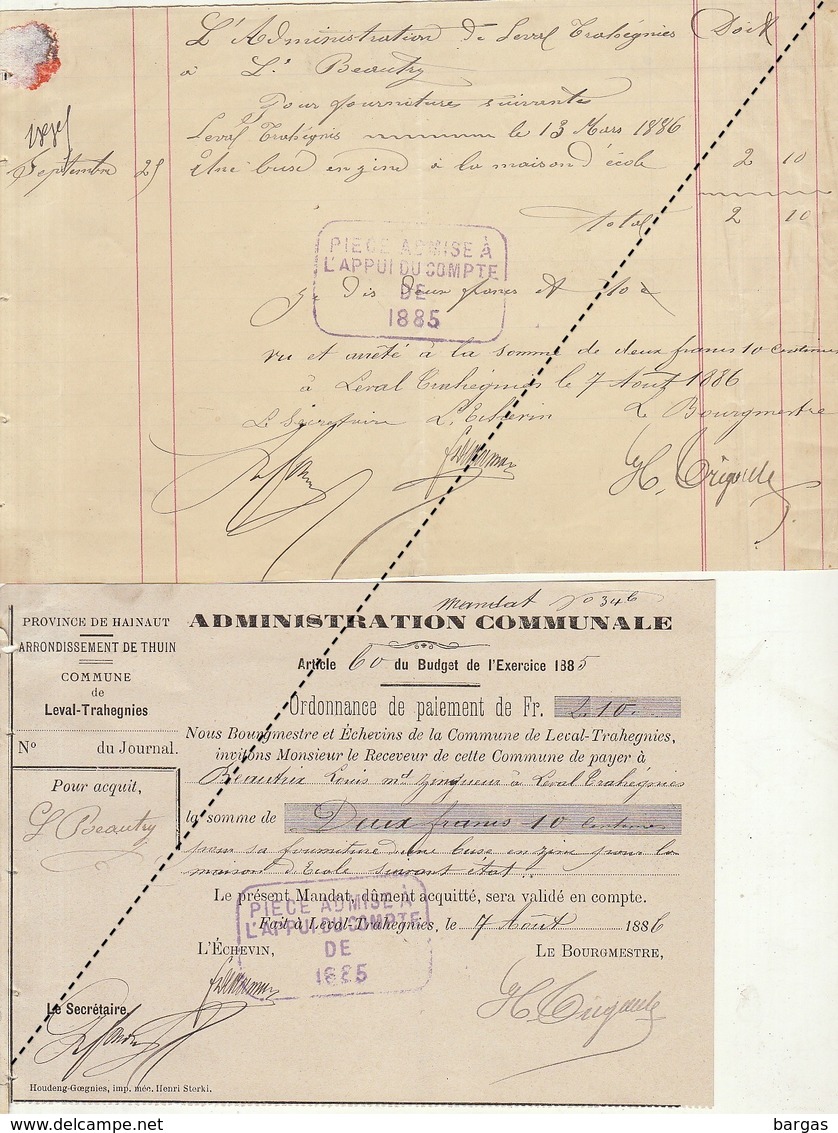 L'Administration de Leval Trahégnies Doit
à L. Beautry
Pour fourniture suivante
Leval Trahégnis le 13 Mars 1886
1885
Septembre 25 Une buse en zinc à la maison d'école 2 10
total 2 10
PIECE ADMISE À
L'APPUI DU COMPTE
DE
1885
Je dis Deux francs et 10 c
vu et arrêté à la somme de deux francs 10 centimes
à Leval Trahégnies le 7 Août 1886
Le Secrétaire L'Echevin Le Bourgmestre
mandat No 346
PROVINCE DE HAINAUT
ARRONDISSEMENT DE THUIN
COMMUNE
de
Leval-Trahegnies
No du Journal.
Pour acquit,
L Beautry
ADMINISTRATION COMMUNALE
Article 60 du Budget de l'Exercice 1885
Ordonnance de paiement de Fr. 2.10
Nous Bourgmestre et Échevins de la Commune de Leval-Trahegnies,
invitons Monsieur le Receveur de cette Commune de payer à
Beautrix Louis md zingueur à Leval Trahégnies
la somme de Deux francs 10 centimes
pour sa fourniture d'une buse en zinc pour la
maison d'Ecole suivant état.
Le présent Mandat, dûment acquitté, sera validé en compte.
Fait à Leval-Trahegnies, le 7 Août 1886
PIECE ADMISE À
L'APPUI DU COMPTE
DE
1885
L'ÉCHEVIN, LE BOURGMESTRE,
Le Secrétaire,
Houdeng-Gœgnies, imp. méc. Henri Sterki.
www.delcampe.net
bargas